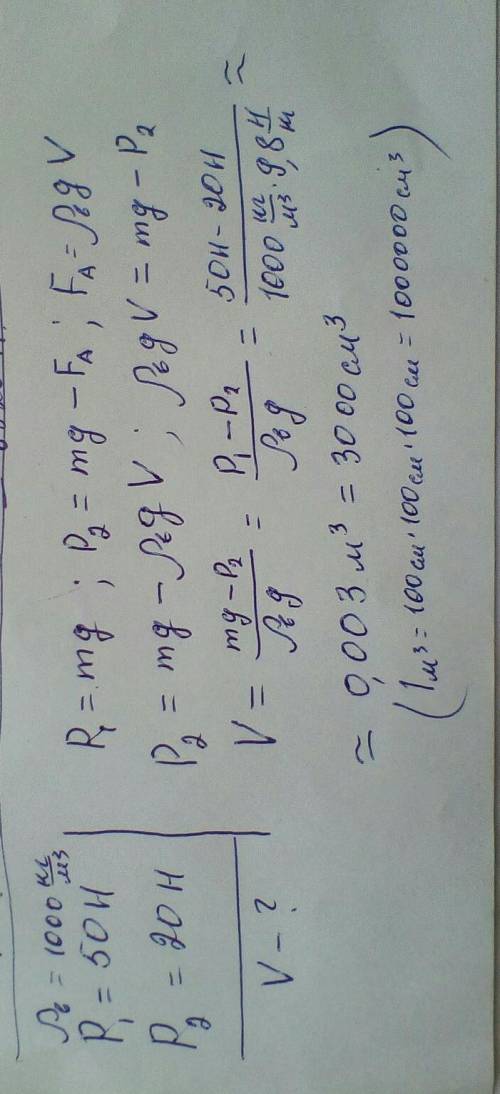 ρв = 1000 кг/м³
P₁ = 50 Н
P₂ = 20 Н
V - ?
P₁ = mg ; P₂ = mg - F_A ; F_A = ρвgV
P₂ = mg - ρвgV ; ρвgV = mg - P₂
V = (mg - P₂)/(ρвg) = (P₁ - P₂)/(ρвg) = (50Н - 20Н)/(1000 кг/м³ · 9,8 Н/м) ≃
≃ 0,003 м³ = 3000 см³
(1м³ = 100см · 100см · 100см = 1000000 см³)